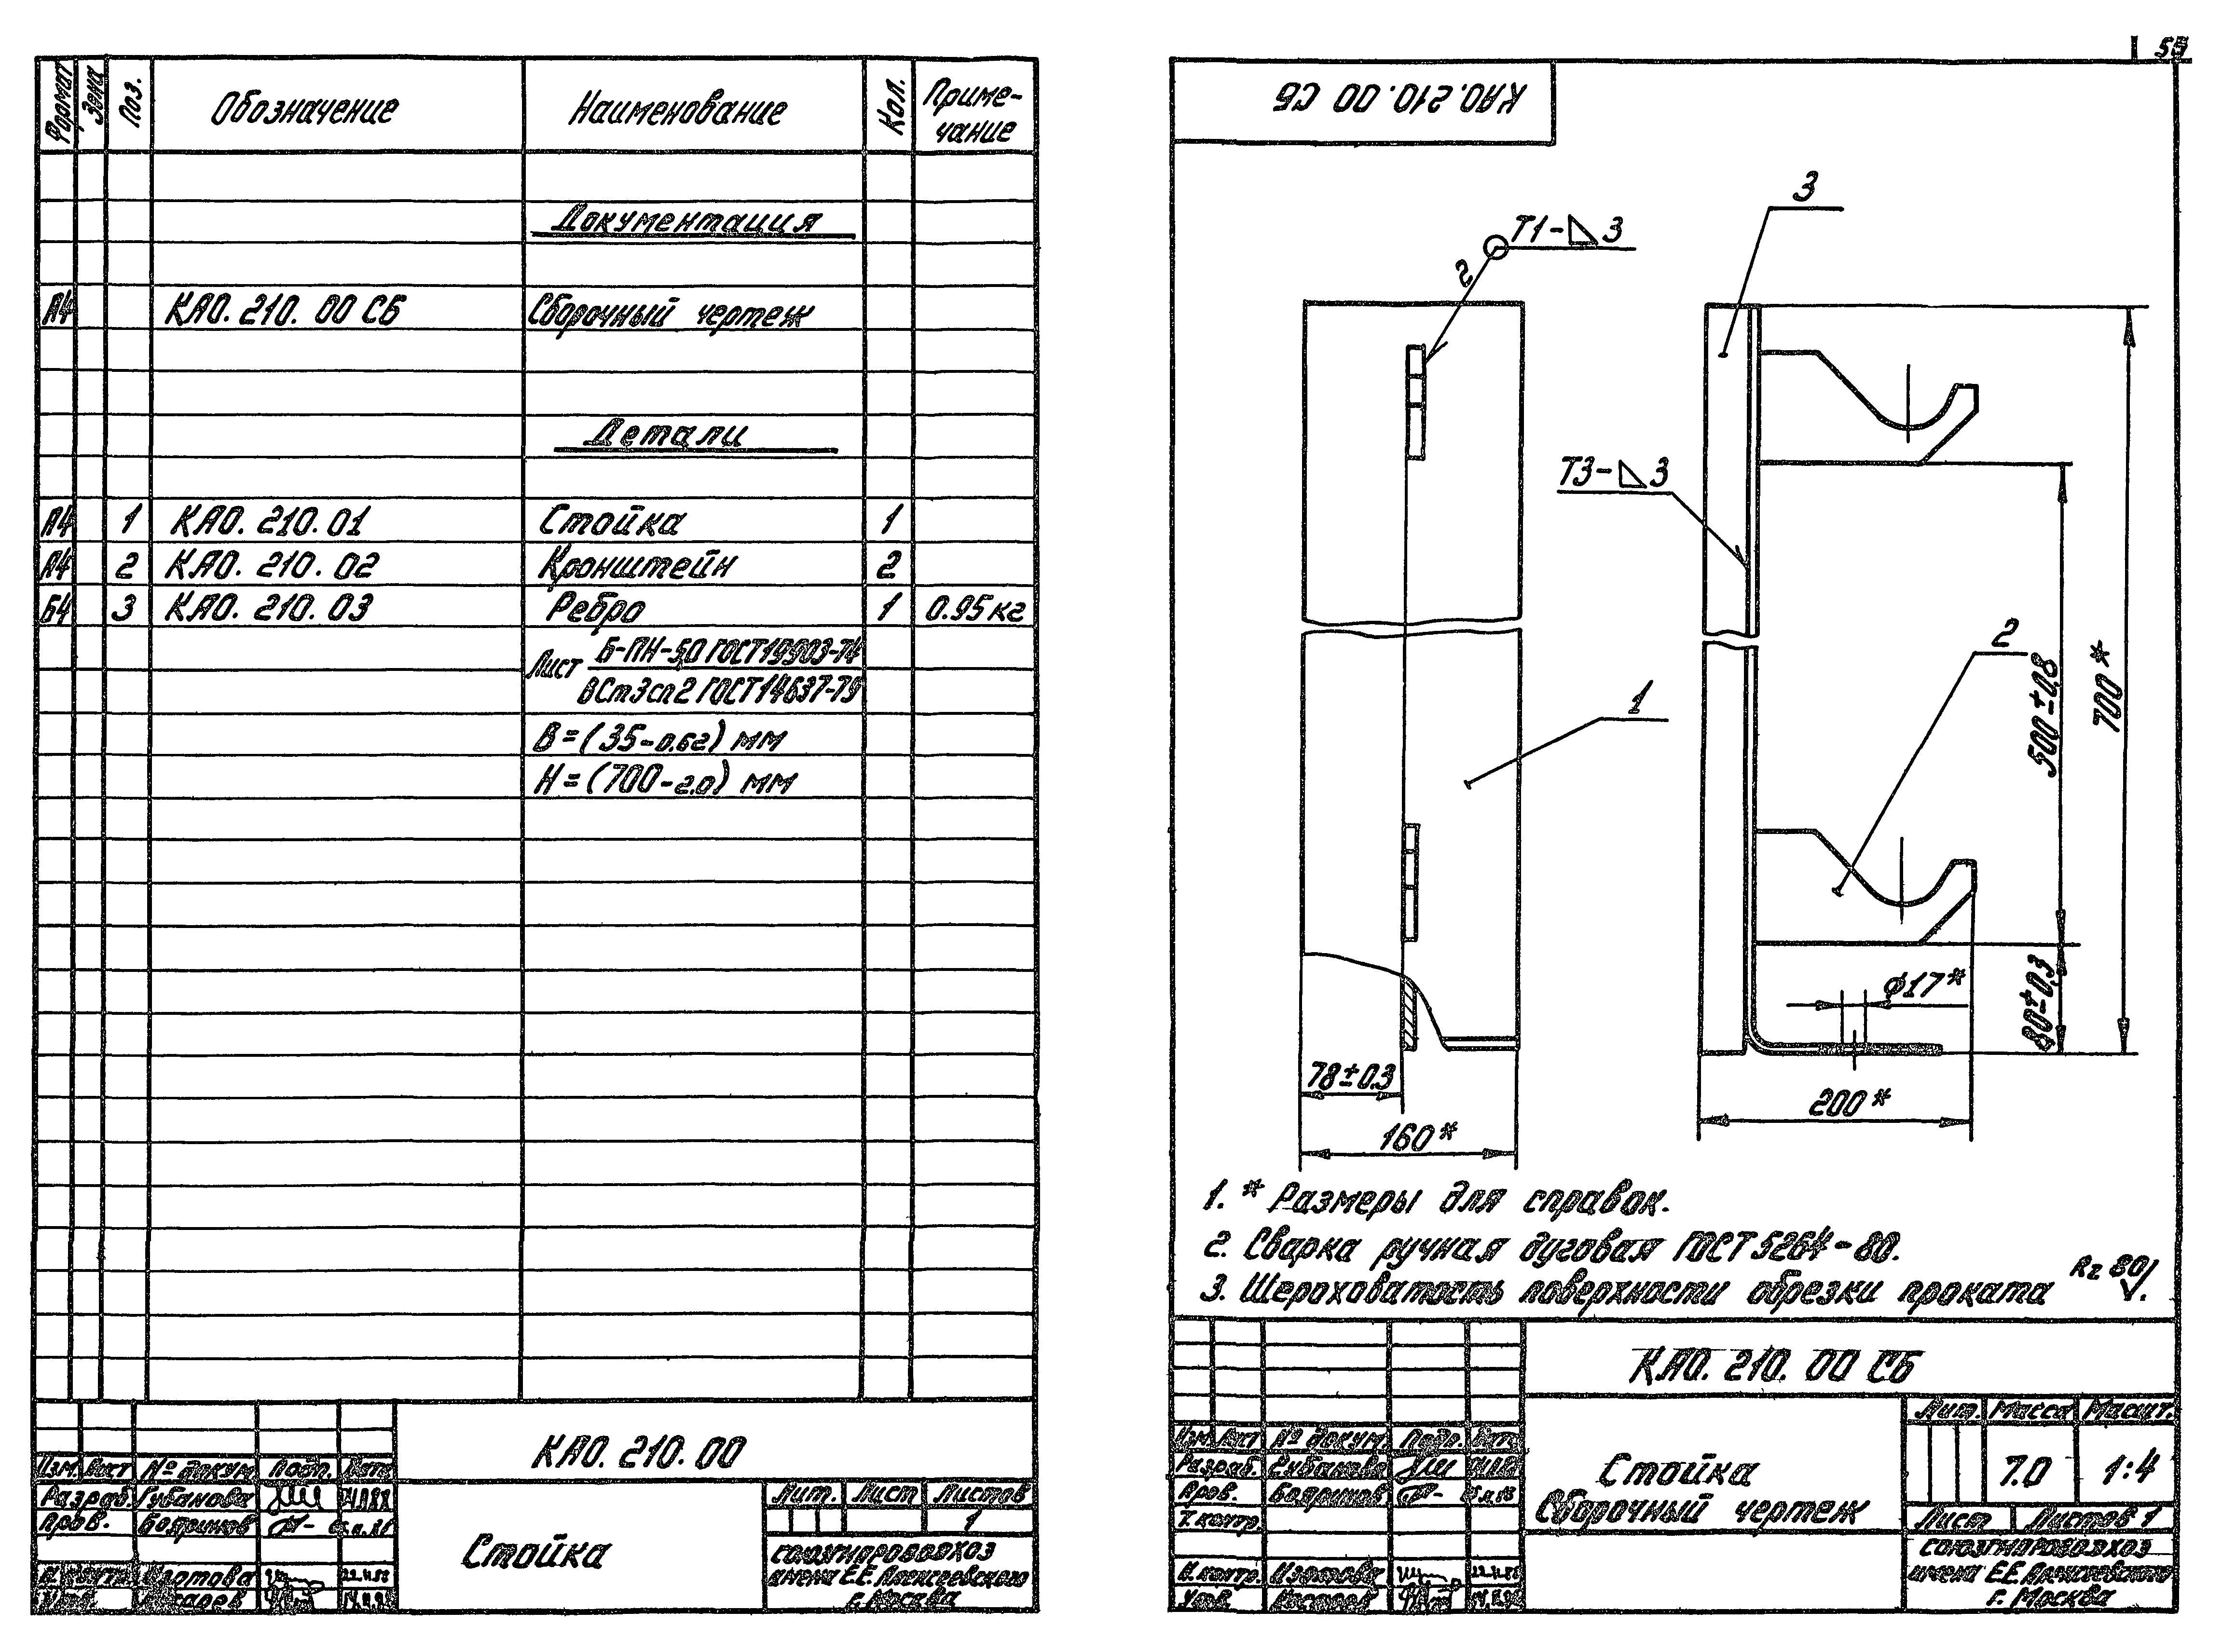 Формат Зона Поз. Обозначение Наименование Кол. Приме-
чание
Документация
А4 КАО. 210. 00 СБ Сборочный чертеж
Детали
А4 1 КАО. 210. 01 Стойка 1
А4 2 КАО. 210. 02 Кронштейн 2
Б4 3 КАО. 210. 03 Ребро 1 0.95 кг
Лист Б-ПН-5,0 ГОСТ 19903-74
ВСт3сп2 ГОСТ 14637-79
В = (35-0.62) мм
Н = (700-2.0) мм
КАО. 210. 00
Изм. Лист № докум. Подп. Дата
Разраб. Губанова
Пров. Бояринов
Н. контр. Изотова 22.11.88
Утв.
Стойка
Лит. Лист Листов
1
СОЮЗГИПРОВОДХОЗ
имени Е.Е. Алексеевского
г. Москва
КАО. 210. 00 СБ
3
Т1-◺3
2
Т3-◺3
2
1
500±0,8
700*
80±0,3
ф17*
78±0.3
160*
200*
1. * Размеры для справок.
2. Сварка ручная дуговая ГОСТ 5264-80.
3. Шероховатость поверхности обрезки проката Rz 80 √.
КАО. 210. 00 СБ
Изм. Лист № докум. Подп. Дата
Разраб. Губанова
Пров. Бояринов
Т. контр.
Н. контр. Изотова 22.11.88
Утв.
Стойка
Сборочный чертеж
Лит. Масса Масшт.
7.0 1:4
Лист Листов 1
СОЮЗГИПРОВОДХОЗ
имени Е.Е. Алексеевского
г. Москва